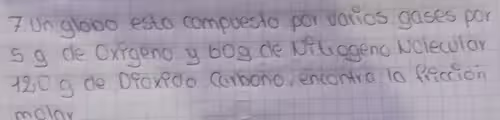 7. Un globo esta compuesto por varios gases por
5 g de Oxigeno y 60g de Nitrogeno Molecular
120 g de Dioxido Carbono, encontra la fracción
molar